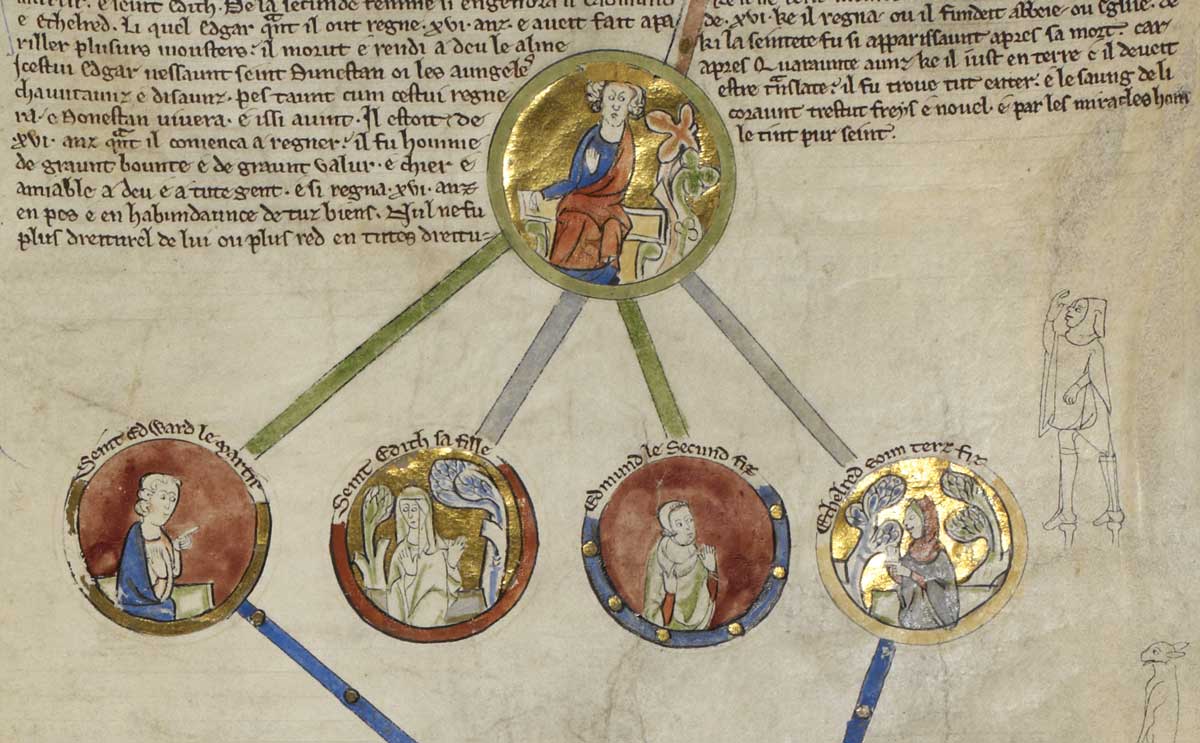 e ethelred. Li quel Edgar q̅nt il out regne. xvi. anz. e aveit fait apa
riller plusurs mousters: il morut e rendi a deu le alme
Icestui Edgar nessaunt seint Dunestan oi les aungeles
chauntaunz e disaunz. pes taunt cum cestui regne
ra. e Donestan vivera. e issi avint. Il estoit de
xvi. anz q̅nt il comenca a regner: il fu homme
de graunt bounte e de graunt valur. e chier e
amiable a deu e a tute gent. e si regna. xvi. anz
en pes e en habundaunce de tuz biens. Nul ne fu
plus dreiturel de lui ou plus red en tutes dreitu=
de. xvi. ke il regna: ou il fundeit abbeie. ou eglise. de
ki la seintete fu si apparissaunt apres sa mort. car
apres Quaraunte aunz ke il iust en terre e il deveit
estre t̅nslate: il fu trove tut enter. e le saung de li
coraunt trestut freys e novel. e par les miracles hom
le tint pur seint.
Seint Edward le martir
Seint Edith sa fille
Edmund le Secund fiz
Ethelred soun terz fiz